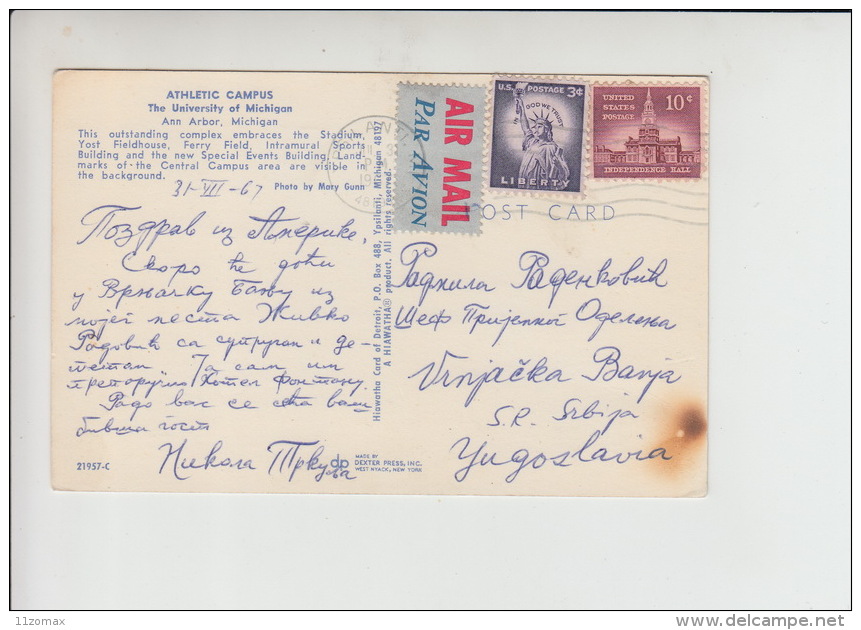 ATHLETIC CAMPUS
The University of Michigan
Ann Arbor, Michigan
This outstanding complex embraces the Stadium,
Yost Fieldhouse, Ferry Field, Intramural Sports
Building and the new Special Events Building. Land-
marks of the Central Campus area are visible in
the background.
31-VII-67 Photo by Mary Gunn
Поздрав из Америке,
Скоро ће доћи
у Врњачку Бању из
мојег места Живко
Радовић са супругом и де-
тетом. Ја сам им
препоручио Хотел Фонтану.
Радо вас се сећа ваш
бивши гост
Никола
21957-C
MADE BY
DEXTER PRESS, INC.
WEST NYACK, NEW YORK
Hiawatha Card of Detroit, P.O. Box 488, Ypsilanti, Michigan 48197
A HIAWATHA® product. All rights reserved.
AIR MAIL
PAR AVION
U.S. POSTAGE 3¢
IN GOD WE TRUST
LIBERTY
UNITED
STATES
POSTAGE
10¢
INDEPENDENCE HALL
POST CARD
Радмила Раденковић
Шеф Пријемног Оделења
Vrnjačka Banja
S.R. Srbija
Yugoslavia
11zomax
delcampe.net